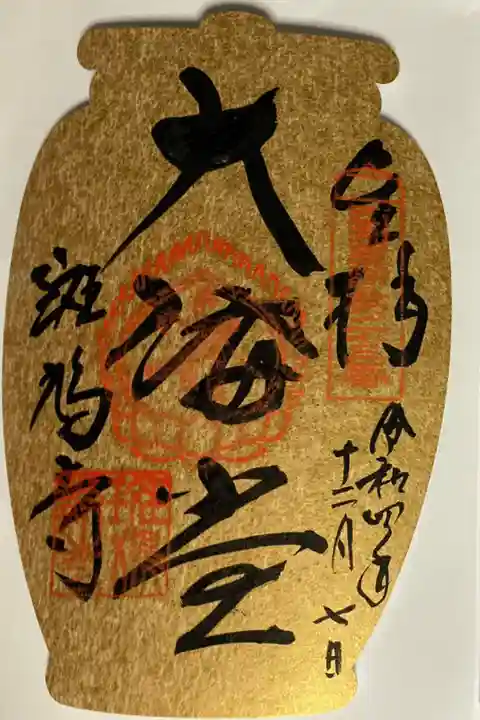 奉拝
令和四年
十二月
七日
大講堂
斑鳩寺